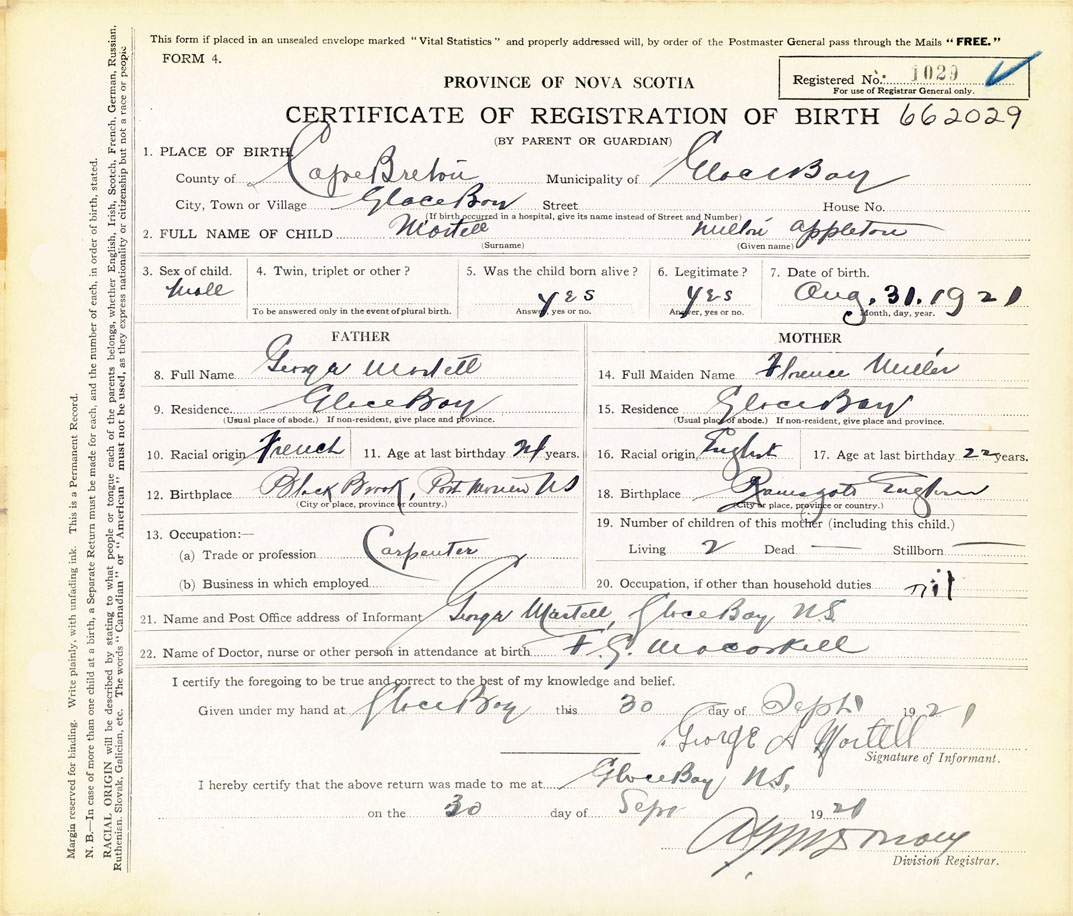 This form if placed in an unsealed envelope marked "Vital Statistics" and properly addressed will, by order of the Postmaster General pass through the Mails "FREE."
FORM 4.
Registered No. 1029
For use of Registrar General only.
PROVINCE OF NOVA SCOTIA
CERTIFICATE OF REGISTRATION OF BIRTH 662029
(BY PARENT OR GUARDIAN)
1. PLACE OF BIRTH
County of Cape Breton Municipality of Glace Bay
City, Town or Village Glace Bay Street House No.
(If birth occurred in a hospital, give its name instead of Street and Number)
2. FULL NAME OF CHILD Martell Milton Appleton
(Surname) (Given name)
3. Sex of child. 4. Twin, triplet or other? 5. Was the child born alive? 6. Legitimate? 7. Date of birth.
Male yes yes Aug. 31. 1921
To be answered only in the event of plural birth. Answer, yes or no. Answer, yes or no. Month, day, year.
FATHER MOTHER
8. Full Name George Martell 14. Full Maiden Name Florence Miller
9. Residence Glace Bay 15. Residence Glace Bay
(Usual place of abode.) If non-resident, give place and province. (Usual place of abode.) If non-resident, give place and province.
10. Racial origin French 11. Age at last birthday 24 years. 16. Racial origin English 17. Age at last birthday 22 years.
12. Birthplace Black Brook, Port Morien NS 18. Birthplace Ramsgate England
(City or place, province or country.) (City or place, province or country.)
13. Occupation:— 19. Number of children of this mother (including this child.)
(a) Trade or profession Carpenter Living 2 Dead — Stillborn —
(b) Business in which employed 20. Occupation, if other than household duties nil
21. Name and Post Office address of Informant George Martell, Glace Bay N.S.
22. Name of Doctor, nurse or other person in attendance at birth
I certify the foregoing to be true and correct to the best of my knowledge and belief.
Given under my hand at Glace Bay this 30 day of Sept 1921
George A Martell
Signature of Informant.
I hereby certify that the above return was made to me at Glace Bay N.S.
on the 30 day of Sept 1921
Division Registrar.
Margin reserved for binding. Write plainly, with unfading ink. This is a Permanent Record.
N. B.—In case of more than one child at a birth, a Separate Return must be made for each, and the number of each, in order of birth, stated.
RACIAL ORIGIN will be described by stating to what people or tongue each of the parents belongs, whether English, Irish, Scotch, French, German, Russian,
Ruthenian, Slovak, Galician, etc. The words "Canadian" or "American" must not be used, as they express nationality or citizenship but not a race or people